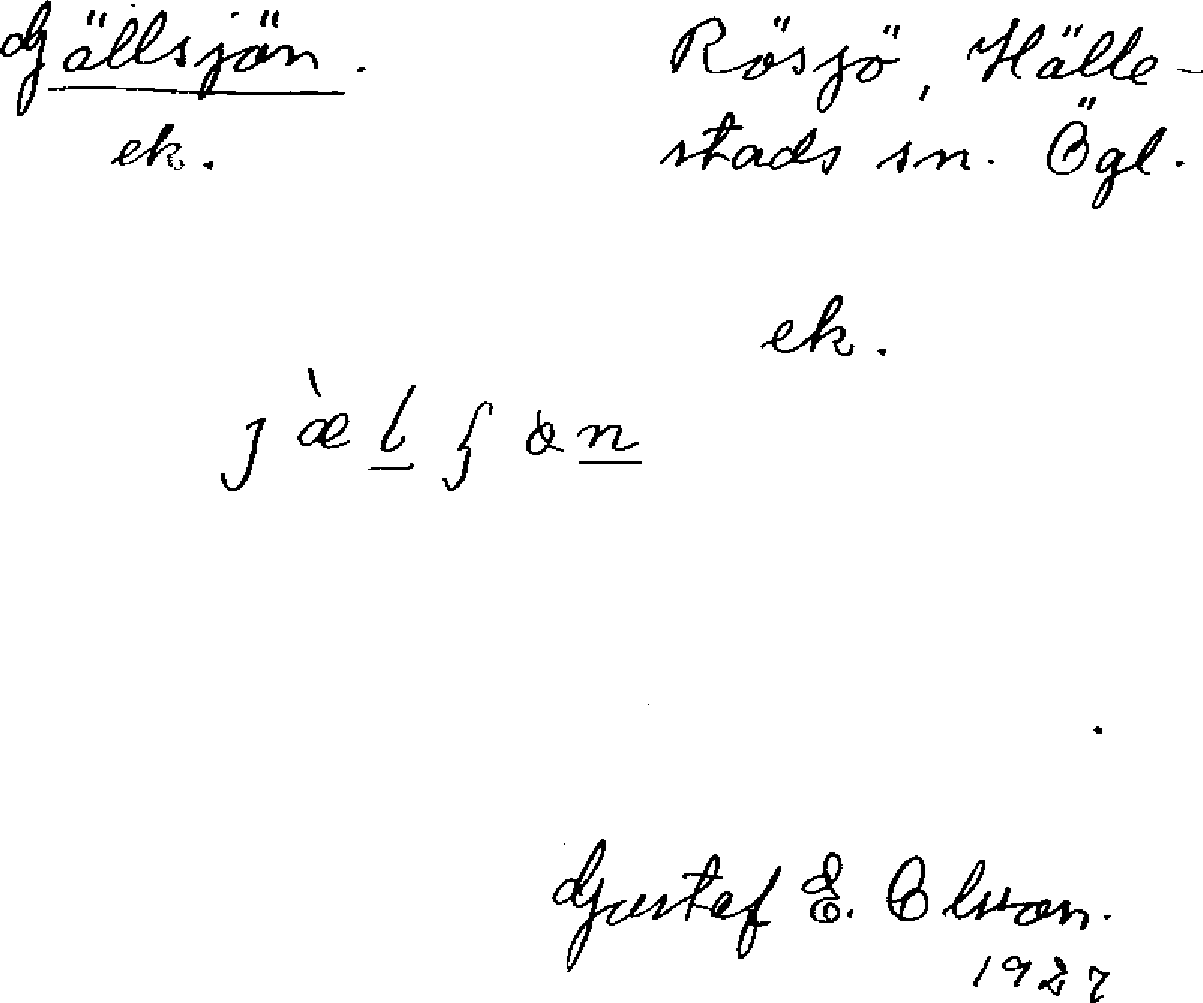 Gällsjön.
ek.
Rösjö, Hälle-
stads sn. Ögl.
ek.
j æ̀ l ʃ ɵ n
Gustaf E. Olsson.
1927